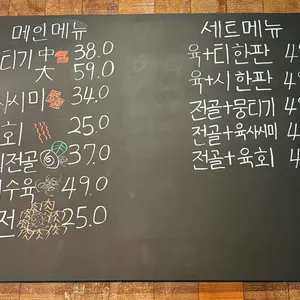 메인메뉴
티기 中 38.0
大 59.0
사시미 34.0
회 25.0
전골 37.0
수육 49.0
전 25.0
세트메뉴
육+티 한판
육+시 한판
전골+뭉티기
전골+육사시미
전골+육회